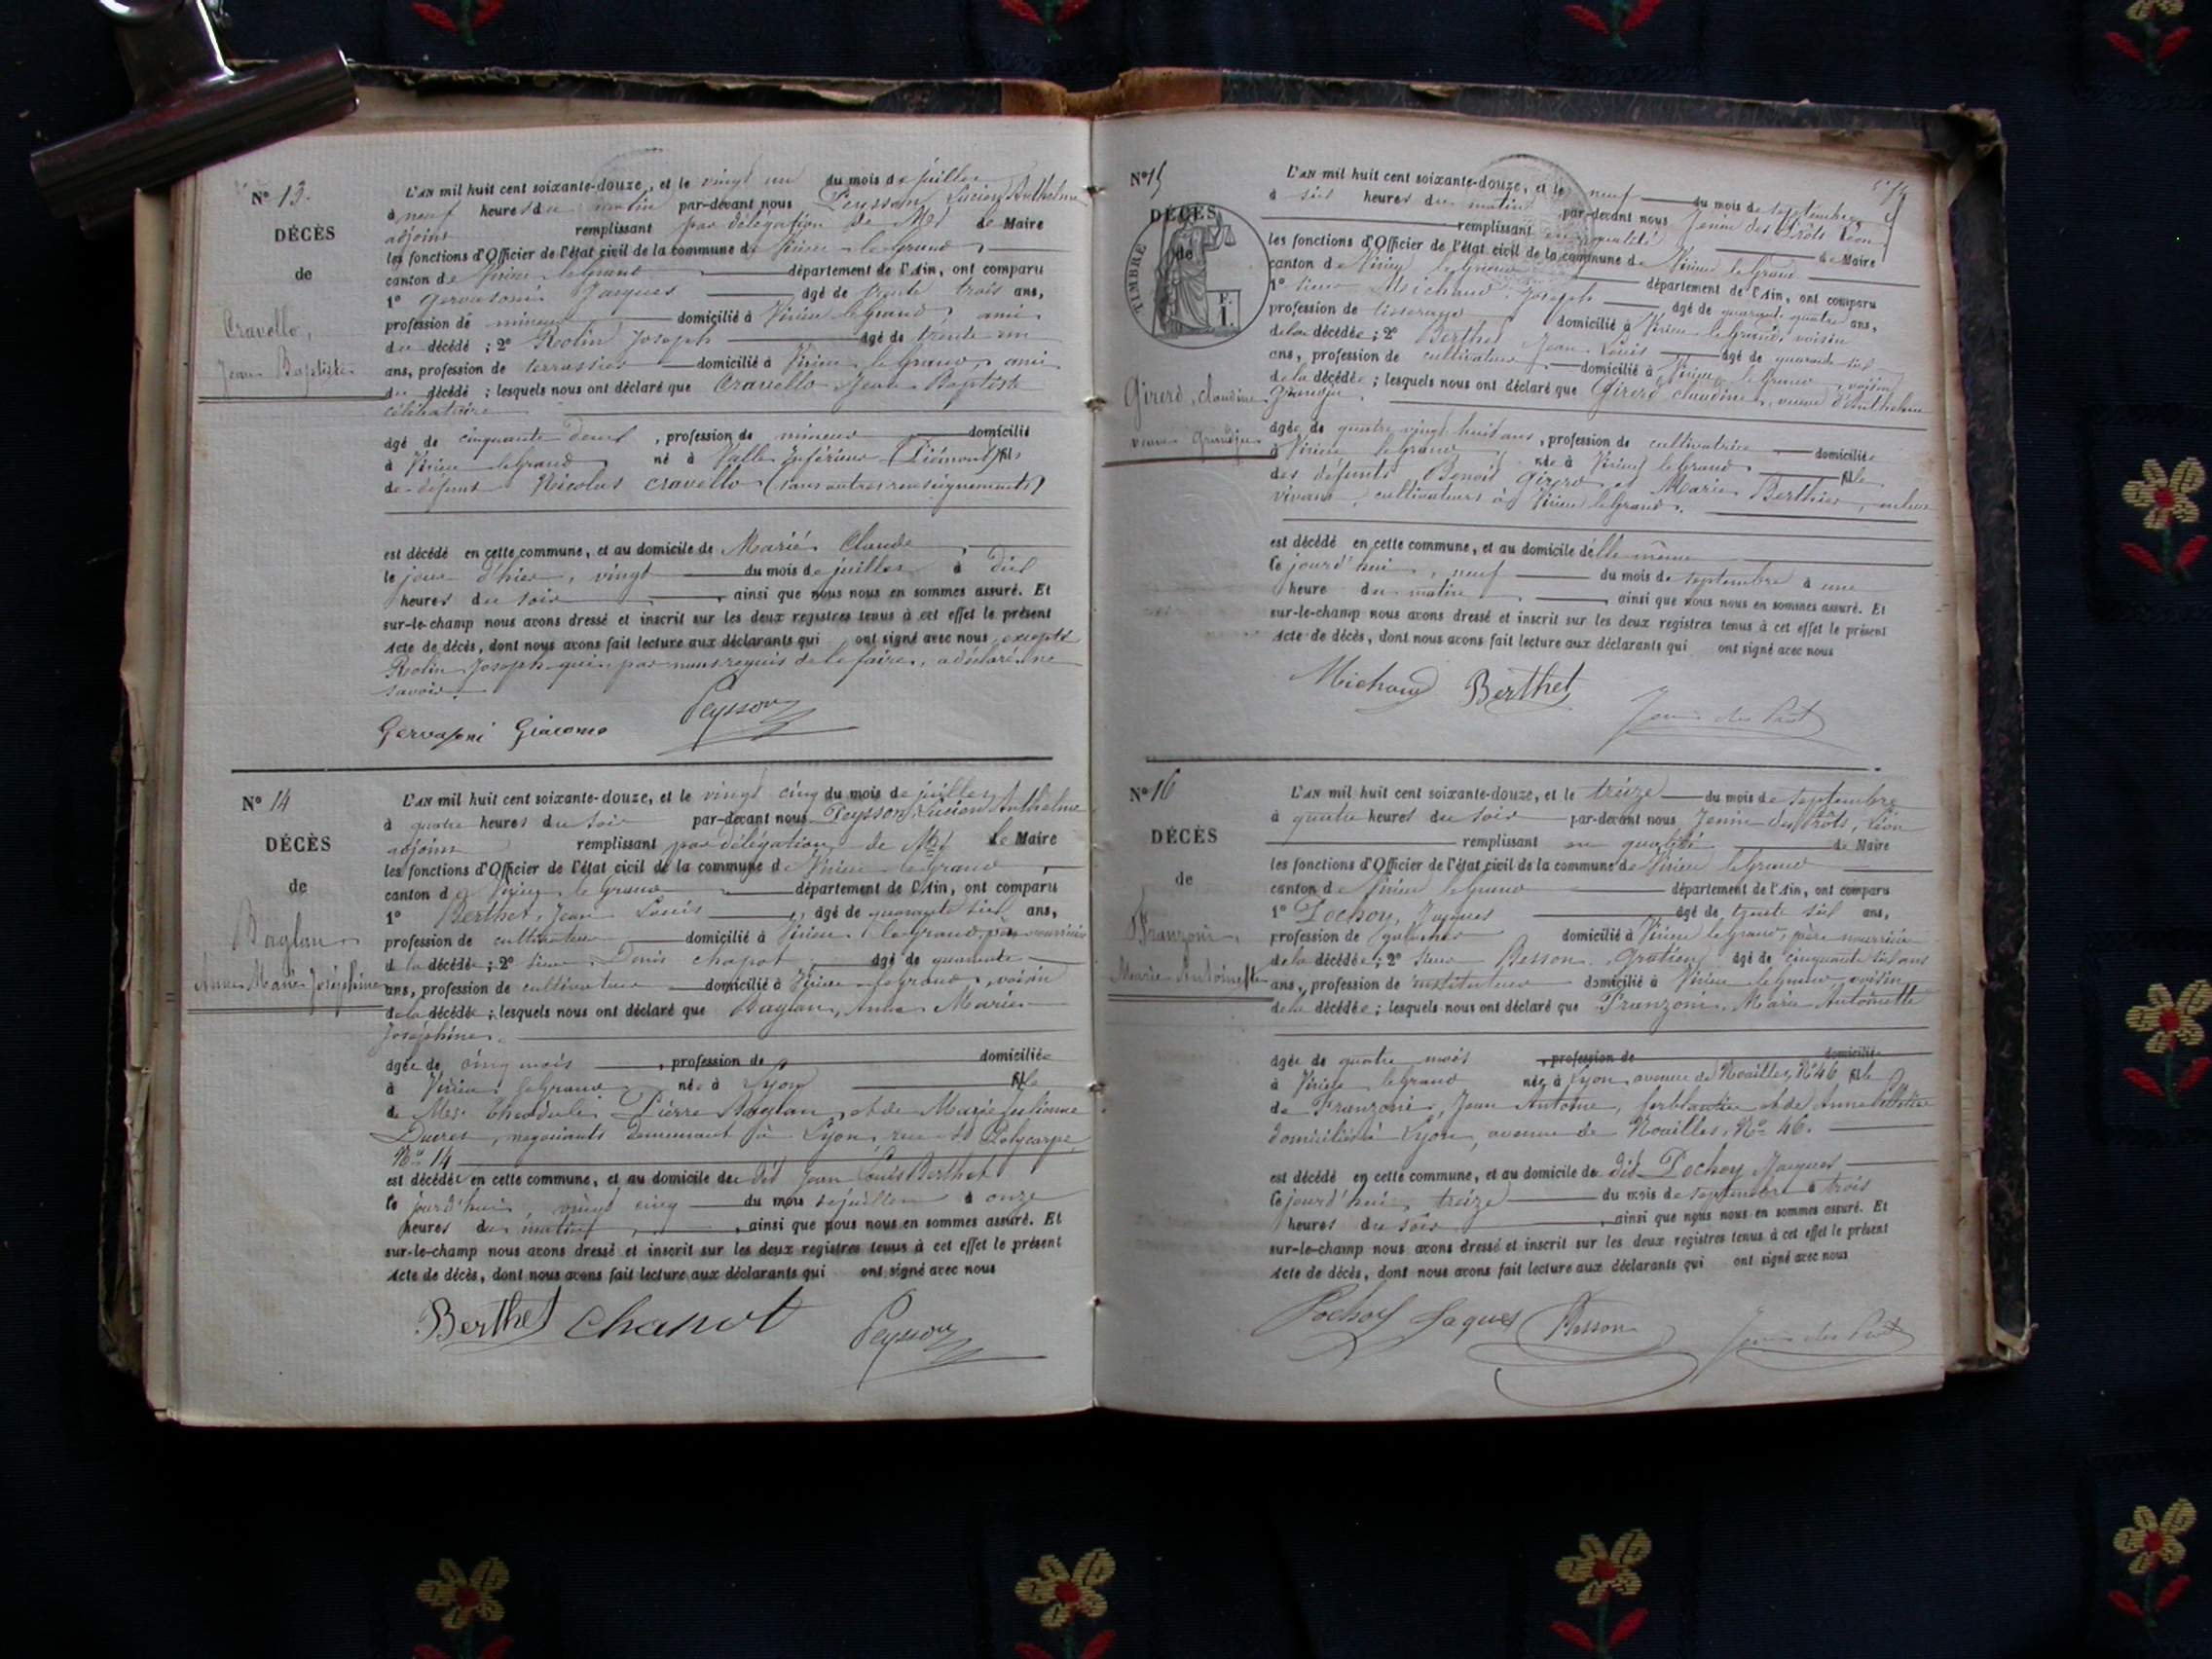 N° 13.
DÉCÈS
de
Cravello,
Jean Baptiste
L'AN mil huit cent soixante-douze, et le vingt un du mois de juillet
à neuf heures du matin par-devant nous Peysson, Lucien Anthelme
adjoint remplissant par délégation de Mr le Maire
les fonctions d'Officier de l'état civil de la commune de Virieu-le-Grand,
canton de Virieu le Grand département de l'Ain, ont comparu
1° Gervasoni Jacques âgé de trente trois ans,
profession de mineur domicilié à Virieu le Grand, ami
du décédé ; 2° Rolin Joseph âgé de trente un
ans, profession de terrassier domicilié à Virieu le Grand, ami
du décédé ; lesquels nous ont déclaré que Cravello Jean Baptiste
célibataire
âgé de cinquante deux , profession de mineur domicilié
à Virieu le Grand né à Valle Inférieur (Piémont) fils
de défunt Nicolas Cravello (sans autres renseignements)
est décédé en cette commune, et au domicile de Marié Claude
le jour d'hier, vingt du mois de juillet à dix
heures du soir , ainsi que nous nous en sommes assuré. Et
sur-le-champ nous avons dressé et inscrit sur les deux registres tenus à cet effet le présent
Acte de décès, dont nous avons fait lecture aux déclarants qui ont signé avec nous, excepté
Rolin Joseph qui, par nous requis de le faire, a déclaré ne
savoir.
Gervasoni Giacomo Peysson
N° 14
DÉCÈS
de
Baglan
Anne Marie Joséphine
L'AN mil huit cent soixante-douze, et le vingt cinq du mois de juillet
à quatre heures du soir par-devant nous Peysson, Lucien Anthelme
adjoint remplissant par délégation de Mr le Maire
les fonctions d'Officier de l'état civil de la commune de Virieu-le-Grand,
canton de Virieu le Grand département de l'Ain, ont comparu
1° Berthet, Jean Louis , âgé de quarante six ans,
profession de cultivateur domicilié à Virieu le Grand, père nourricier
de la décédée ; 2° sieur Denis Chapot âgé de quarante
ans, profession de cultivateur domicilié à Virieu-le-Grand, voisin
de la décédée ; lesquels nous ont déclaré que Baglan, Anne Marie
Joséphine.
âgée de cinq mois , profession de domiciliée
à Virieu le Grand née à Lyon fille
de Mrs Théodule Pierre Baglan, et de Marie Julienne
Ducret, négociants demeurant à Lyon, rue St Polycarpe
N° 14
est décédée en cette commune, et au domicile du dit Jean Louis Berthet
le jourd'hui, vingt cinq du mois de juillet à onze
heures du matin , ainsi que nous nous en sommes assuré. Et
sur-le-champ nous avons dressé et inscrit sur les deux registres tenus à cet effet le présent
Acte de décès, dont nous avons fait lecture aux déclarants qui ont signé avec nous
Berthet Chapot Peysson
N° 15
DÉCÈS
de
TIMBRE
F.
1.
Girerd, Claudine
veuve Grandju
L'AN mil huit cent soixante-douze, et le neuf du mois de septembre
à six heures du matin par-devant nous Jenin des Prôts Léon
remplissant en qualité de Maire
les fonctions d'Officier de l'état civil de la commune de Virieu le Grand
canton de Virieu le Grand département de l'Ain, ont comparu
1° sieur Michaud, Joseph âgé de quarante quatre ans,
profession de tisserand domicilié à Virieu le Grand, voisin
de la décédée ; 2° Berthet Jean Louis âgé de quarante six
ans, profession de cultivateur domicilié à Virieu le Grand, voisin
de la décédée ; lesquels nous ont déclaré que Girerd Claudine, veuve d'Anthelme
Grandju
âgée de quatre vingt huit ans , profession de cultivatrice domiciliée
à Virieu le Grand née à Virieu le Grand fille
des défunts Benoit Girerd et Marie Berthier, en leur
vivant cultivateurs à Virieu le Grand.
est décédé en cette commune, et au domicile d'elle même
le jourd'hui, neuf du mois de septembre à une
heure du matin , ainsi que nous nous en sommes assuré. Et
sur-le-champ nous avons dressé et inscrit sur les deux registres tenus à cet effet le présent
Acte de décès, dont nous avons fait lecture aux déclarants qui ont signé avec nous
Michaud Berthet Jenin des Prôts
N° 16
DÉCÈS
de
Franzoni,
Marie Antoinette
L'AN mil huit cent soixante-douze, et le treize du mois de septembre
à quatre heures du soir par-devant nous Jenin des Prôts, Léon
remplissant en qualité de Maire
les fonctions d'Officier de l'état civil de la commune de Virieu le Grand
canton de Virieu le Grand département de l'Ain, ont comparu
1° Pochoy, Jacques âgé de trente six ans,
profession de domicilié à Virieu le Grand, père nourricier
de la décédée ; 2° sieur Besson Gratien âgé de cinquante six ans
ans, profession de instituteur domicilié à Virieu le Grand, voisin
de la décédée ; lesquels nous ont déclaré que Franzoni, Marie Antoinette
âgée de quatre mois , profession de domiciliée
à Virieu le Grand née à Lyon avenue de Noailles, N° 46 fille
de Franzoni, Jean Antoine, ferblantier et de Anne
domiciliés à Lyon, avenue de Noailles, N° 46.
est décédé en cette commune, et au domicile du dit Pochoy Jacques
le jourd'hui treize du mois de septembre à trois
heures du soir , ainsi que nous nous en sommes assuré. Et
sur-le-champ nous avons dressé et inscrit sur les deux registres tenus à cet effet le présent
Acte de décès, dont nous avons fait lecture aux déclarants qui ont signé avec nous
Pochoy Jaques Besson Jenin des Prôts